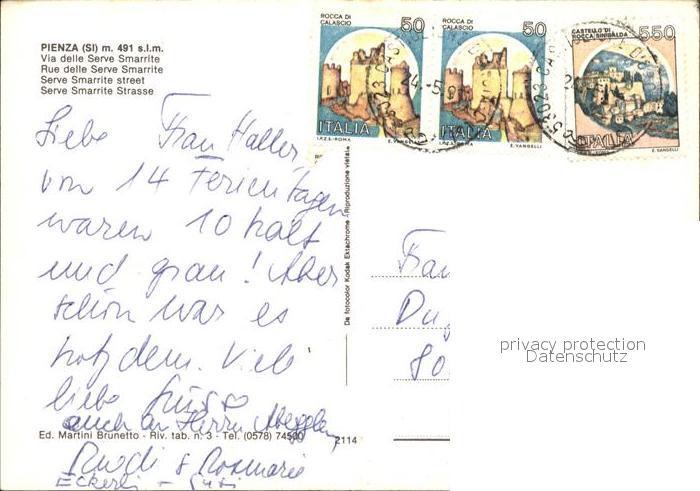 PIENZA (SI) m. 491 s.l.m.
Via delle Serve Smarrite
Rue delle Serve Smarrite
Serve Smarrite street
Serve Smarrite Strasse
ROCCA DI CALASCIO
50
ITALIA
I.P.Z.S.-ROMA E. VANGELLI
ROCCA DI CALASCIO
50
ITALIA
I.P.Z.S.-ROMA E. VANGELLI
CASTELLO DI ROCCA SINIBALDA
550
ITALIA
E. VANGELLI
53023
Liebe Frau Haller,
von 14 Ferientagen
waren 10 kalt
und grau! Aber
schön war es
trotzdem. Viele
liebe Grüsse
auch an Herrn
Ruedi & Rosmarie
Da fotocolor Kodak Ektachrome - Riproduzione vietata
Frau
80
privacy protection
Datenschutz
Ed. Martini Brunetto - Riv. tab. n. 3 - Tel. (0578) 74500
2114